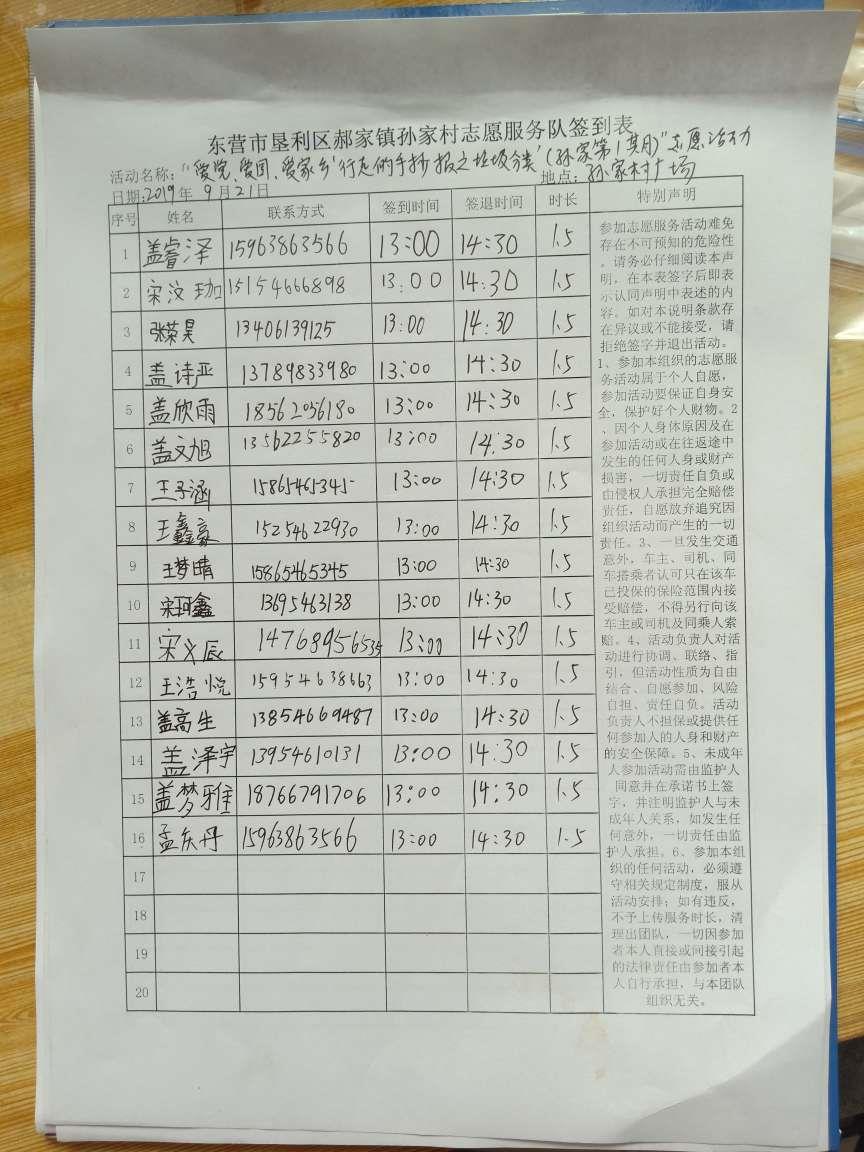 东营市垦利区郝家镇孙家村志愿服务队签到表
活动名称:"爱党、爱国、爱家乡'行走的手抄报之垃圾分类'(孙家第1期)"志愿活动
日期:2019年 9月21日 地点:孙家村广场
序号 姓名 联系方式 签到时间 签退时间 时长 特别声明
1 盖睿泽 15963863566 13:00 14:30 1.5
2 宋汶珈 15154666898 13:00 14:30 1.5
3 张荣昊 13406139125 13:00 14:30 1.5
4 盖诗亚 13789833980 13:00 14:30 1.5
5 盖欣雨 18562056180 13:00 14:30 1.5
6 盖文旭 13562255820 13:00 14:30 1.5
7 王子涵 15865465345 13:00 14:30 1.5
8 王鑫豪 15254622930 13:00 14:30 1.5
9 王梦晴 15865465345 13:00 14:30 1.5
10 宋珂鑫 13695463138 13:00 14:30 1.5
11 宋文辰 14768956535 13:00 14:30 1.5
12 王浩悦 15954638663 13:00 14:30 1.5
13 盖高生 13854669487 13:00 14:30 1.5
14 盖泽宇 13954610131 13:00 14:30 1.5
15 盖梦雅 18766791706 13:00 14:30 1.5
16 孟庆丹 15963863566 13:00 14:30 1.5
17
18
19
20
参加志愿服务活动难免
存在不可预知的危险性
。请务必仔细阅读本声
明，在本表签字后即表
示认同声明中表述的内
容。如对本说明条款存
在异议或不能接受，请
拒绝签字并退出活动。
1、参加本组织的志愿服
务活动属于个人自愿，
参加活动要保证自身安
全，保护好个人财物。2
、因个人身体原因及在
参加活动或在往返途中
发生的任何人身或财产
损害，一切责任自负或
由侵权人承担完全赔偿
责任，自愿放弃追究因
组织活动而产生的一切
责任。3、一旦发生交通
意外，车主、司机、同
车搭乘者认可只在该车
已投保的保险范围内接
受赔偿，不得另行向该
车主或司机及同乘人索
赔。4、活动负责人对活
动进行协调、联络、指
引，但活动性质为自由
结合、自愿参加、风险
自担、责任自负。活动
负责人不担保或提供任
何参加人的人身和财产
的安全保障。5、未成年
人参加活动需由监护人
同意并在承诺书上签
字，并注明监护人与未
成年人关系，如发生任
何意外，一切责任由监
护人承担。6、参加本组
织的任何活动，必须遵
守相关规定制度，服从
活动安排；如有违反，
不予上传服务时长，清
理出团队，一切因参加
者本人直接或间接引起
的法律责任由参加者本
人自行承担，与本团队
组织无关。